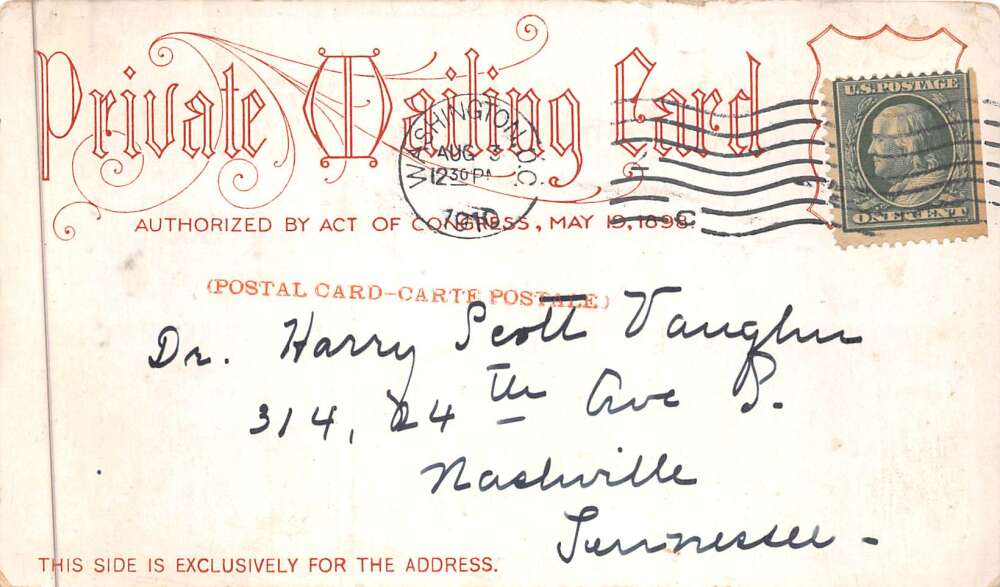 Private Mailing Card
U.S. POSTAGE
ONE CENT
WASHINGTON, D.C.
AUG 3
12 30 PM
1910
AUTHORIZED BY ACT OF CONGRESS, MAY 19, 1898
(POSTAL CARD-CARTE POSTALE)
Dr. Harry Scott Vaughn
314, 24th Ave S.
Nashville
Tennessee -
THIS SIDE IS EXCLUSIVELY FOR THE ADDRESS.